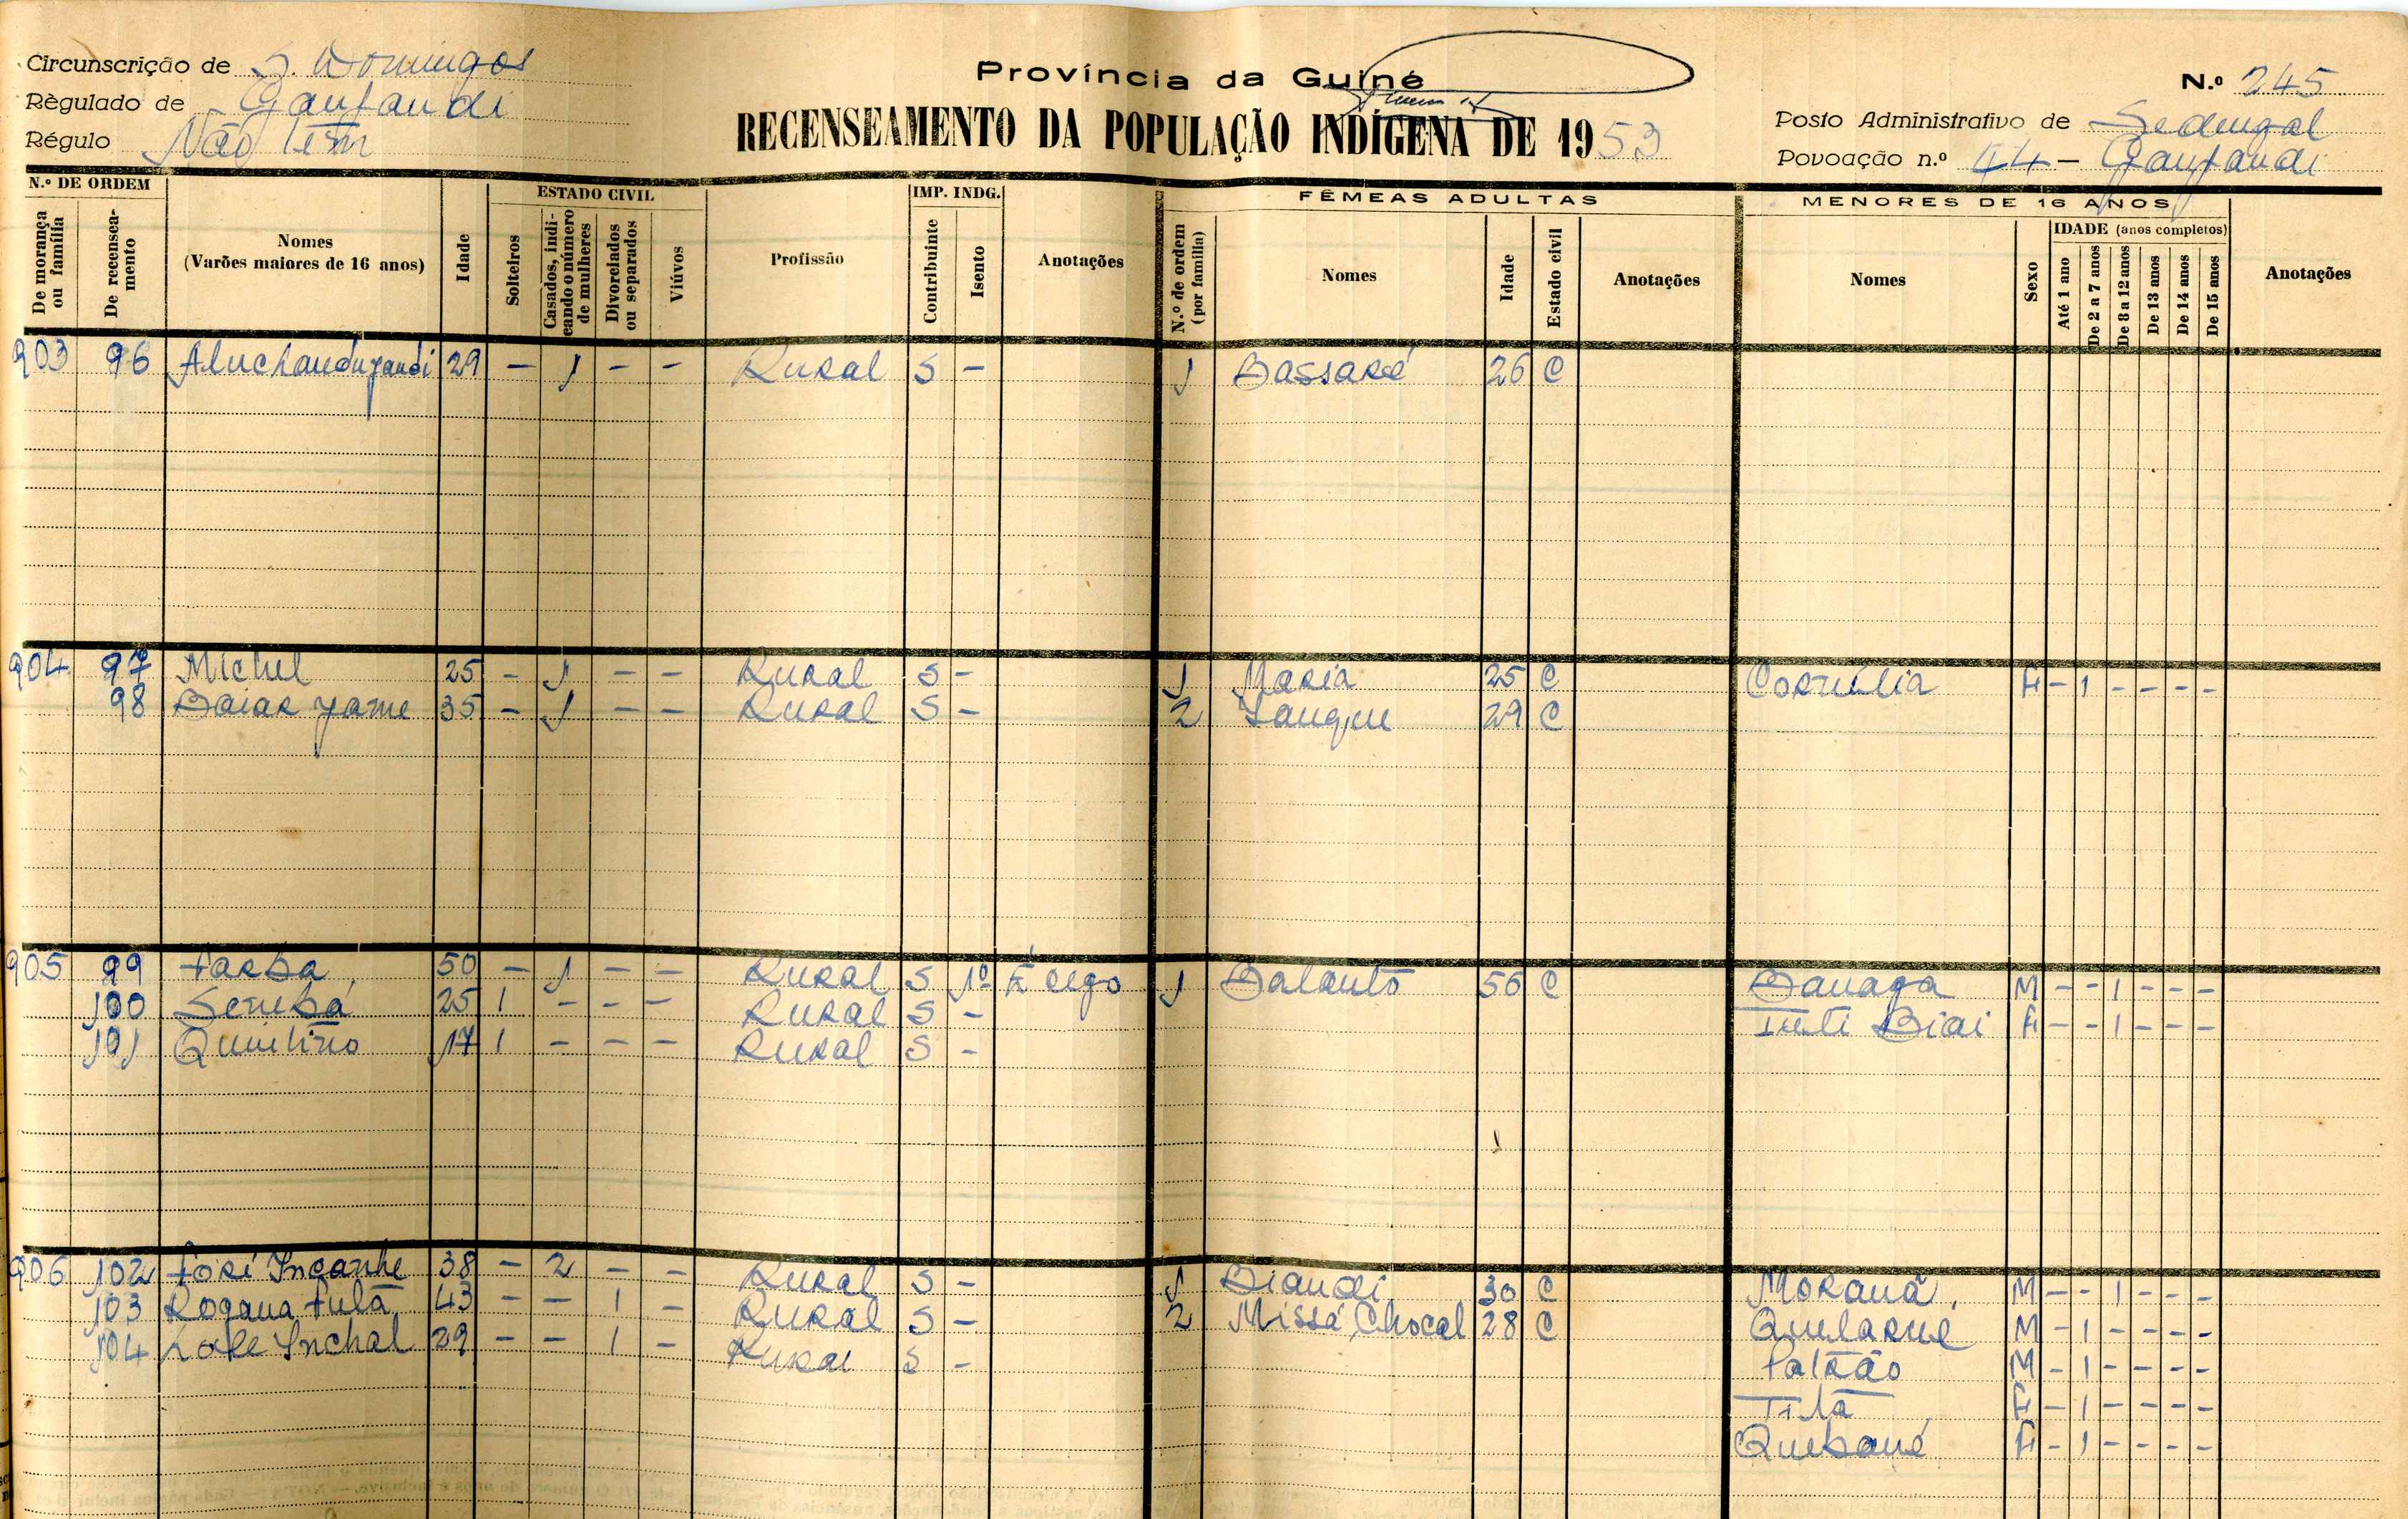 Circunscrição de S. Domingos
Règulado de
Régulo Não tem
Província da Guiné
RECENSEAMENTO DA POPULAÇÃO INDÍGENA DE 1953
N.º 245
Posto Administrativo de Sedengal
Povoação n.º 44 -
N.º DE ORDEM
De morança ou família
De recenseamento
Nomes
(Varões maiores de 16 anos)
Idade
ESTADO CIVIL
Solteiros
Casados, indicando o número de mulheres
Divorciados ou separados
Viúvos
Profissão
IMP. INDG.
Contribuinte
Isento
Anotações
FÊMEAS ADULTAS
N.º de ordem (por família)
Nomes
Idade
Estado civil
Anotações
MENORES DE 16 ANOS
Nomes
Sexo
IDADE (anos completos)
Até 1 ano
De 2 a 7 anos
De 8 a 12 anos
De 13 anos
De 14 anos
De 15 anos
Anotações
903 96 29 - 1 - - Rural S - 1 Bassaré 26 C
904 97 Michel 25 - 1 - - Rural S - 1 Maria 25 C Cornélia F - 1 - - - -
98 35 - 1 - - Rural S - 2 29 C
905 99 50 - 1 - - Rural S É cego 1 C M - - 1 - - -
100 25 1 - - - Rural S - Biai F - - 1 - - -
101 17 1 - - - Rural S -
906 102 José 38 - 2 - - Rural S - 1 Biandi 30 C Moraná M - - 1 - - -
103 43 - - 1 - Rural S - 2 Missá Chocal 28 C M - 1 - - - -
104 Inchal 29 - - 1 - Rural S - M - 1 - - - -
F - 1 - - - -
F - 1 - - - -